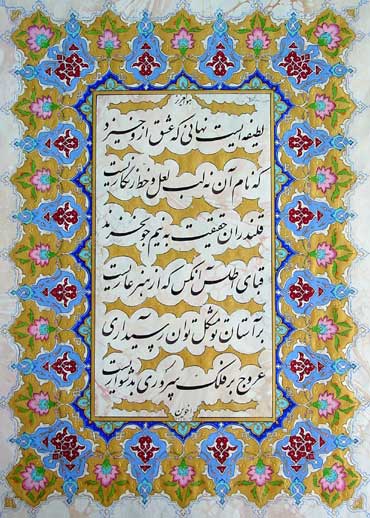 هوالعزیز
لطیفه‌ایست نهانی که عشق ازو خیزد
که نام آن نه لب لعل و خط زنگاریست
قلندران حقیقت به نیم جو نخرند
قبای اطلس آنکس که از هنر عاریست
بر آستان تو مشکل توان رسید آری
عروج بر فلک سروری بدشواریست